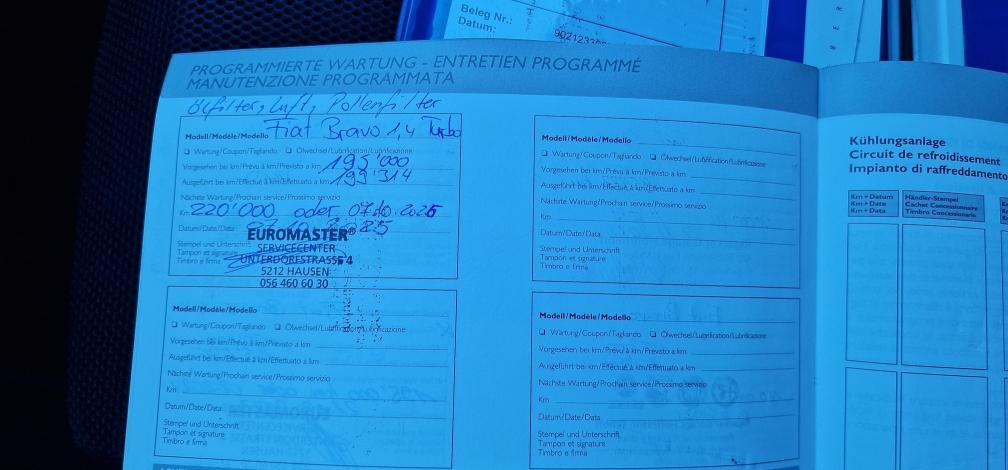 Beleg Nr.:
Datum:
PROGRAMMIERTE WARTUNG - ENTRETIEN PROGRAMMÉ
MANUTENZIONE PROGRAMMATA
Ölfilter, Luft, Pollenfilter
Modell/Modèle/Modello Fiat Bravo 1,4 Turbo
❑ Wartung/Coupon/Tagliando ❑ Ölwechsel/Lubrification/Lubrificazione
Vorgesehen bei km/Prévu à km/Previsto a km 195'000
Ausgeführt bei km/Effectué à km/Effettuato a km 199'314
Nächste Wartung/Prochain service/Prossimo servizio
Km 220'000 oder 07.10.2026
Datum/Date/Data
Stempel und Unterschrift
Tampon et signature
Timbro e firma
EUROMASTER®
SERVICECENTER
UNTERDORFSTRASSE 4
5212 HAUSEN
056 460 60 30
Modell/Modèle/Modello
❑ Wartung/Coupon/Tagliando ❑ Ölwechsel/Lubrification/Lubrificazione
Vorgesehen bei km/Prévu à km/Previsto a km
Ausgeführt bei km/Effectué à km/Effettuato a km
Nächste Wartung/Prochain service/Prossimo servizio
Km
Datum/Date/Data
Stempel und Unterschrift
Tampon et signature
Timbro e firma
Modell/Modèle/Modello
❑ Wartung/Coupon/Tagliando ❑ Ölwechsel/Lubrification/Lubrificazione
Vorgesehen bei km/Prévu à km/Previsto a km
Ausgeführt bei km/Effectué à km/Effettuato a km
Nächste Wartung/Prochain service/Prossimo servizio
Km
Datum/Date/Data
Stempel und Unterschrift
Tampon et signature
Timbro e firma
Modell/Modèle/Modello
❑ Wartung/Coupon/Tagliando ❑ Ölwechsel/Lubrification/Lubrificazione
Vorgesehen bei km/Prévu à km/Previsto a km
Ausgeführt bei km/Effectué à km/Effettuato a km
Nächste Wartung/Prochain service/Prossimo servizio
Km
Datum/Date/Data
Stempel und Unterschrift
Tampon et signature
Timbro e firma
Kühlungsanlage
Circuit de refroidissement
Impianto di raffreddamento
Km + Datum
Km + Date
Km + Data
Händler-Stempel
Cachet Concessionnaire
Timbro Concessionario